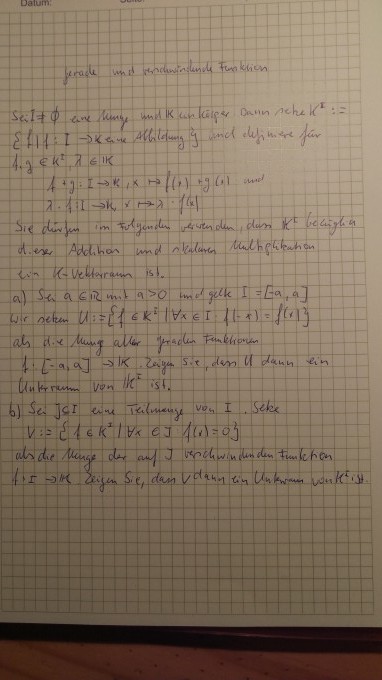 Datum:
gerade und verschwindende Funktion
Sei I ≠ ∅ eine Menge und K ein Körper Dann setze K^I :=
{f | f : I → K eine Abbildung} und definiere für
f, g ∈ K^I, λ ∈ K
f + g : I → K, x ↦ f(x) + g(x) und
λ · f : I → K, x ↦ λ · f(x)
Sie dürfen im Folgenden verwenden, dass K^I bezüglich
dieser Addition und skalaren Multiplikation
ein K-Vektorraum ist.
a) Sei a ∈ R mit a > 0 und gelte I = [-a, a]
Wir setzen U := {f ∈ K^I | ∀x ∈ I : f(-x) = f(x)}
als die Menge aller geraden Funktionen
f : [-a, a] → K. Zeigen Sie, dass U dann ein
Unterraum von K^I ist.
b) Sei J ⊆ I eine Teilmenge von I. Setze
V := {f ∈ K^I | ∀x ∈ J : f(x) = 0}
als die Menge der auf J verschwindenden Funktion
f : I → K Zeigen Sie, dass V dann ein Unterraum von K^I ist.